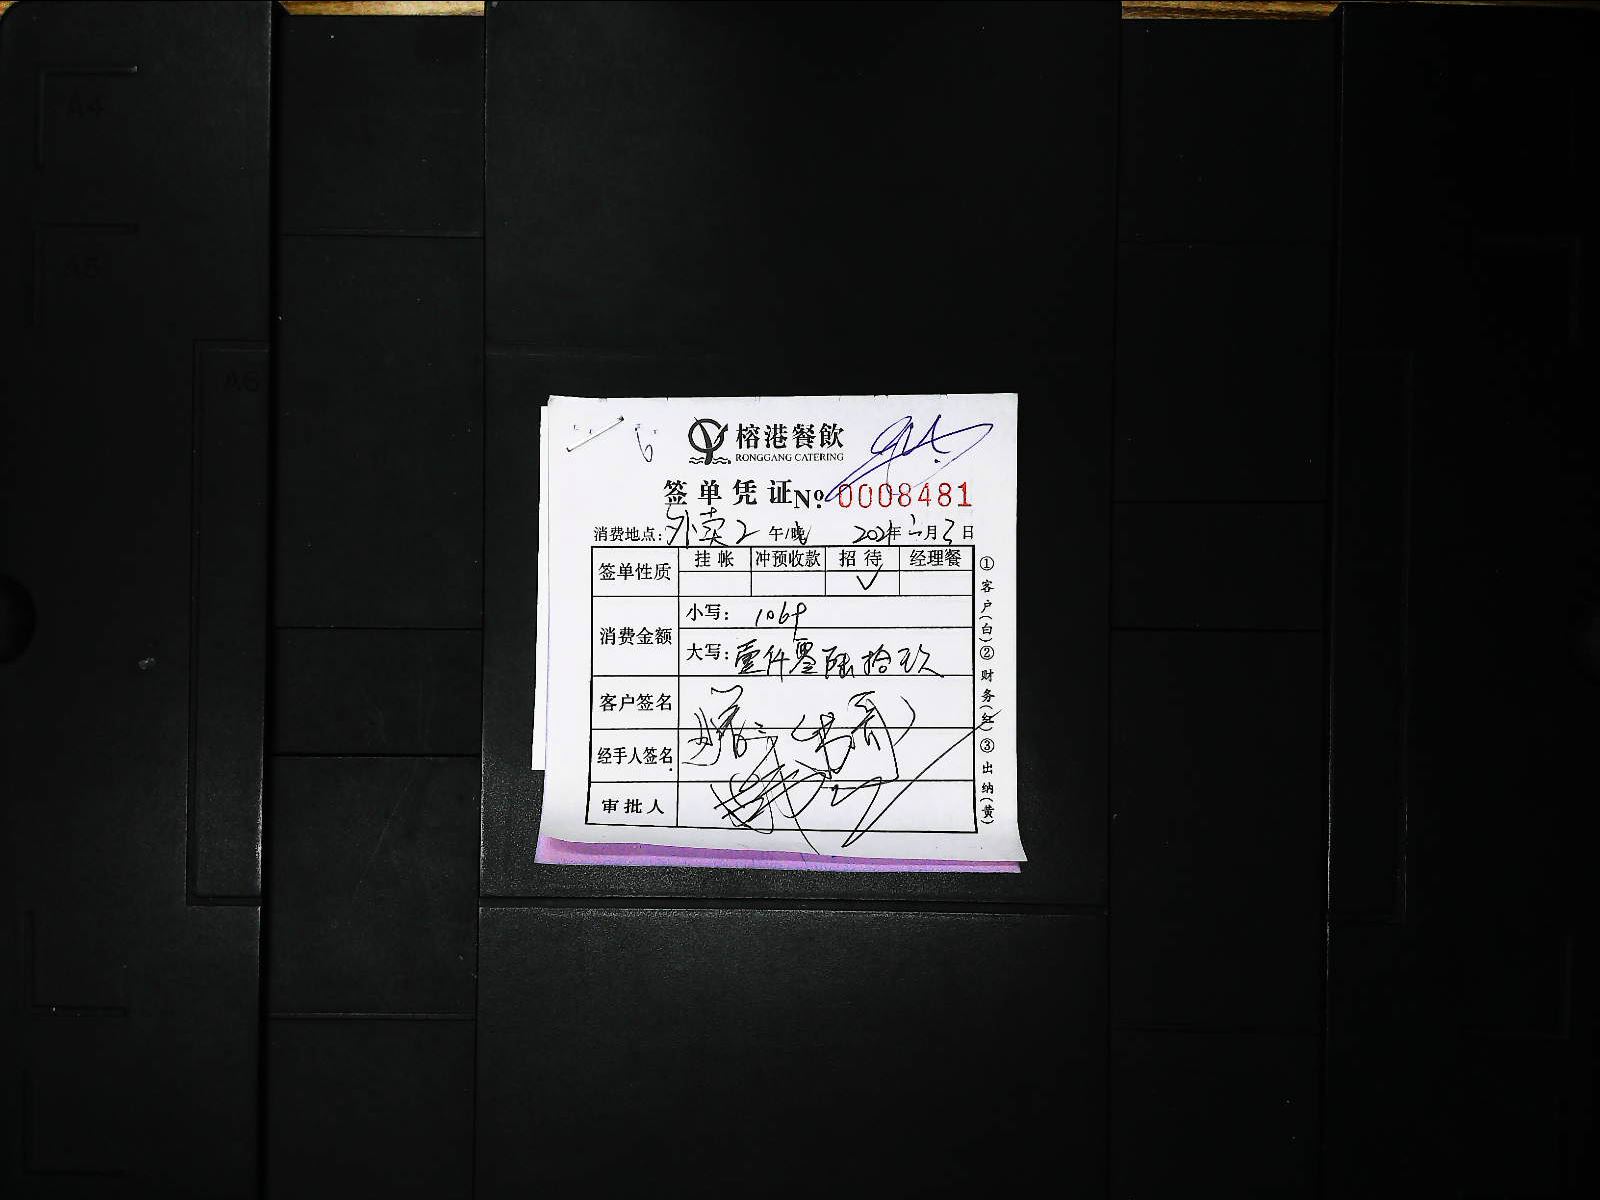 A4
A5
A6
6
榕港餐飲
RONGGANG CATERING
签单凭证 No. 0008481
消费地点: 外卖2 午/晚 2021年 二月 3日
签单性质 挂帐 冲预收款 招待 经理餐
✓
消费金额 小写: 1069
大写: 壹仟零陆拾玖
客户签名
经手人签名
审批人
①客户(白)②财务(红)③出纳(黄)